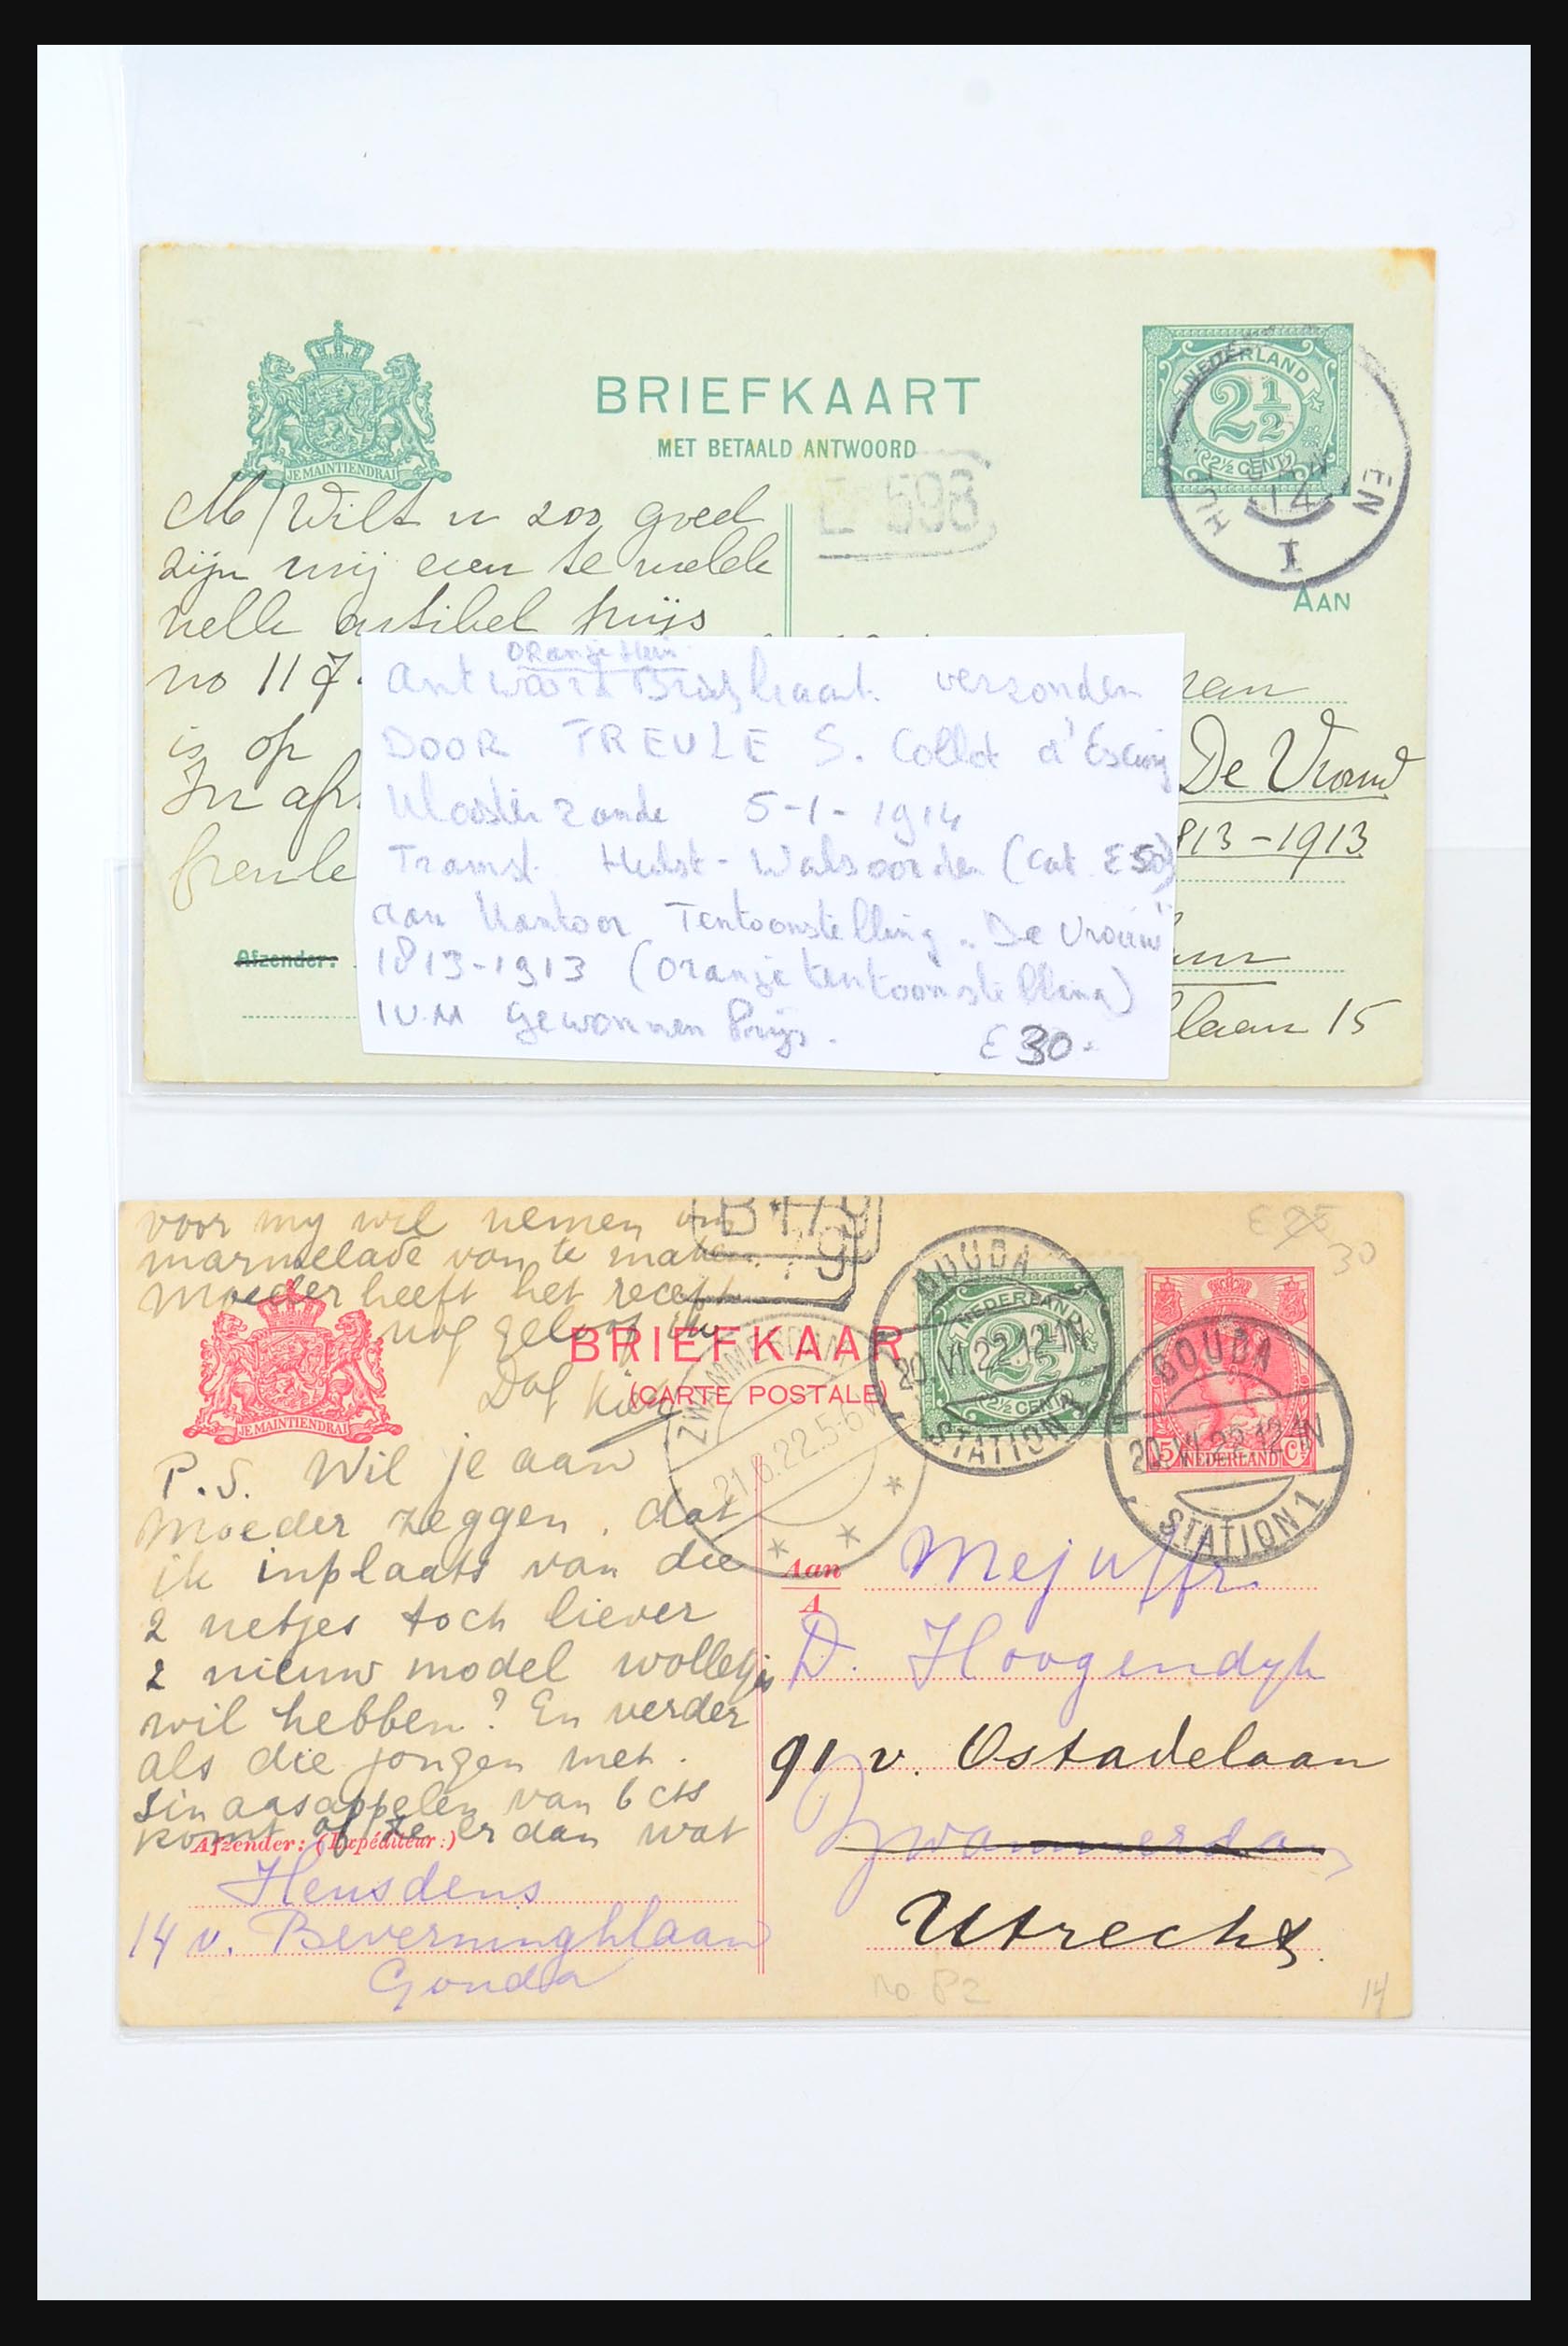 BRIEFKAART
MET BETAALD ANTWOORD
JE MAINTIENDRAI
NEDERLAND
2½
(2½ CENT)
14
EN
I
598
AAN
M/ Wilt u zoo goed
zijn mij even te melde
welk artikel prijs
no 117.
is op
In af
freule
Afzender:
De Vrouw
1813-1913
laan 15
Oranje
Antwoord Briefkaart verzonden
DOOR FREULE S. Collot d'Escury
Kloosterzande 5-1-1914
Tramst. Hulst-Walsoorden (Cat E50)
aan Kantoor Tentoonstelling "De Vrouw"
1813-1913 (Oranjetentoonstelling)
I.V.M gewonnen Prijs.
£ 30.-
voor my wil nemen om
marmelade van te maken.
Moeder heeft het recept
nog geloof ik
Dag
BRIEFKAAR
(CARTE POSTALE)
JE MAINTIENDRAI
ZWAMMERDAM
21.6.22.5-6
GOUDA
20.VI.22.12-1N
STATION 1
NEDERLAND
2½
(2½ CENT)
GOUDA
20.VI.22.12-1N
STATION 1
5 Ct
NEDERLAND
30
P.S. Wil je aan
Moeder zeggen, dat
ik inplaats van die
2 netjes toch liever
2 nieuw model wolletjes
wil hebben? En verder
als die jongen met
sinaasappelen van 6 cts
komt of ze er dan wat
Afzender: (Expéditeur:)
Heusdens
14 v. Beverninghlaan
Gouda
Aan
A
Mejuffr.
D. Hoogendyk
91 v. Ostadelaan
Zwammerdam
Utrecht.
no 82
14